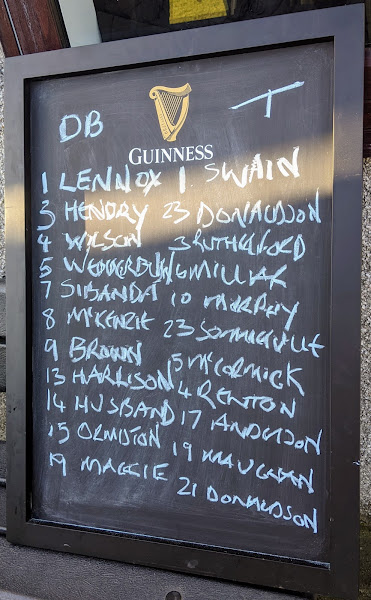 DB T
GUINNESS
1 LENNOX 1 SWAIN
3 HENDRY 23 DONALDSON
4 WILSON 3 RUTHERFORD
5 WEDDERBURN 6 MILLAR
7 SIBANDA 10 MURPHY
8 McKENZIE 23 SOMMERVILLE
9 BROWN 5 McCORMICK
13 HARRISON 4 RENTON
14 HUSBAND 17 ANDERSON
15 ORMISTON 19 VAUGHAN
19 MACKIE 21 DONALDSON